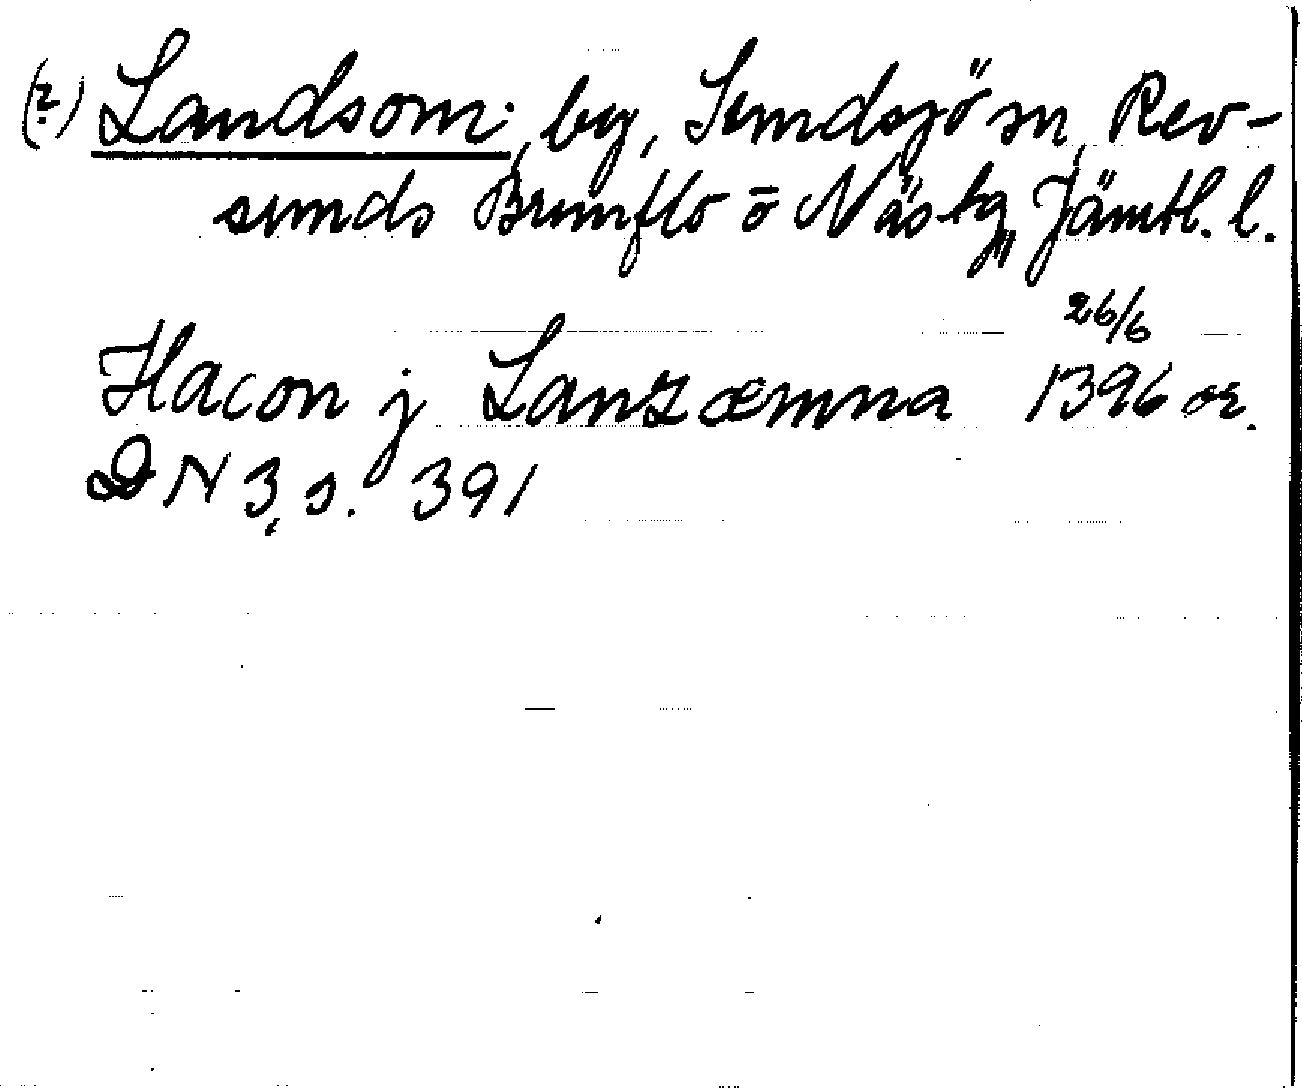 (?) Landsom, by, Sundsjö sn, Rev-
sunds Brunflo ō Näs tg, Jämtl. l.
26/6
Hacon j Lanzæmna 1396 or.
DN 3, s. 391